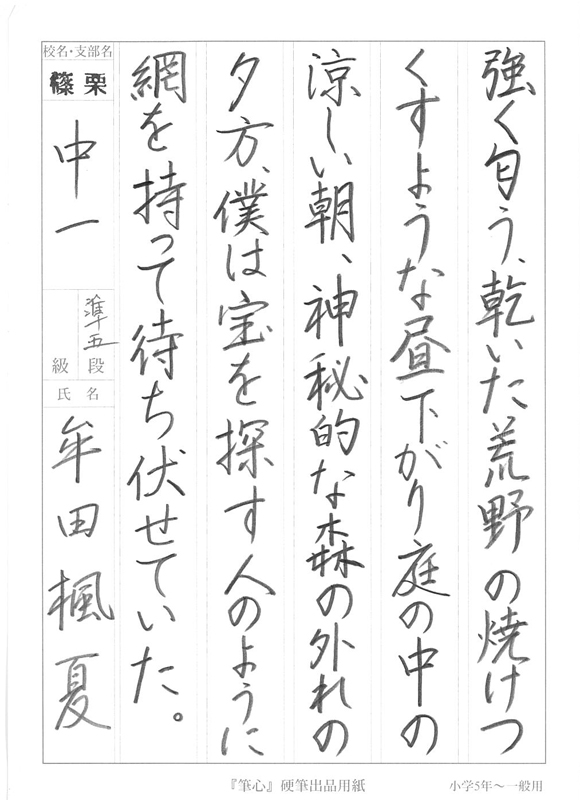 強く匂う、乾いた荒野の焼けつ
くすような昼下がり庭の中の
涼しい朝、神秘的な森の外れの
夕方、僕は宝を探す人のように
網を持って待ち伏せていた。
校名・支部名
篠栗
中一
準五
段
級
氏名
牟田楓夏
『筆心』硬筆出品用紙
小学5年～一般用